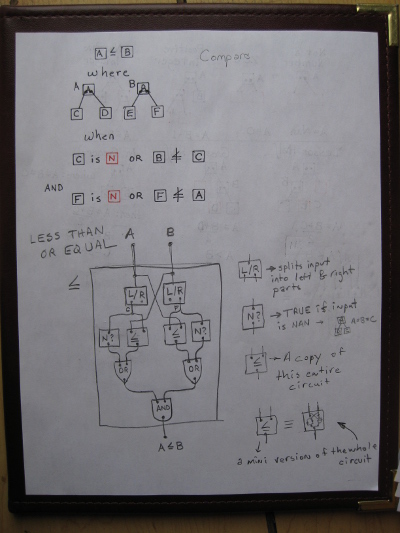 A ≤ B
Compare
where
A
B
A
C D E F
when
C is N OR B ≰ C
AND
F is N OR F ≰ A
LESS THAN
OR EQUAL
≤
A B
L/R L/R
C F
N? ≤ ≤ N?
OR OR
AND
A ≤ B
L/R → splits input
into left & right
parts
N? → TRUE if input
is NAN →
≤ → A copy of
this entire
circuit
≤ ≡
a mini version of the whole
circuit